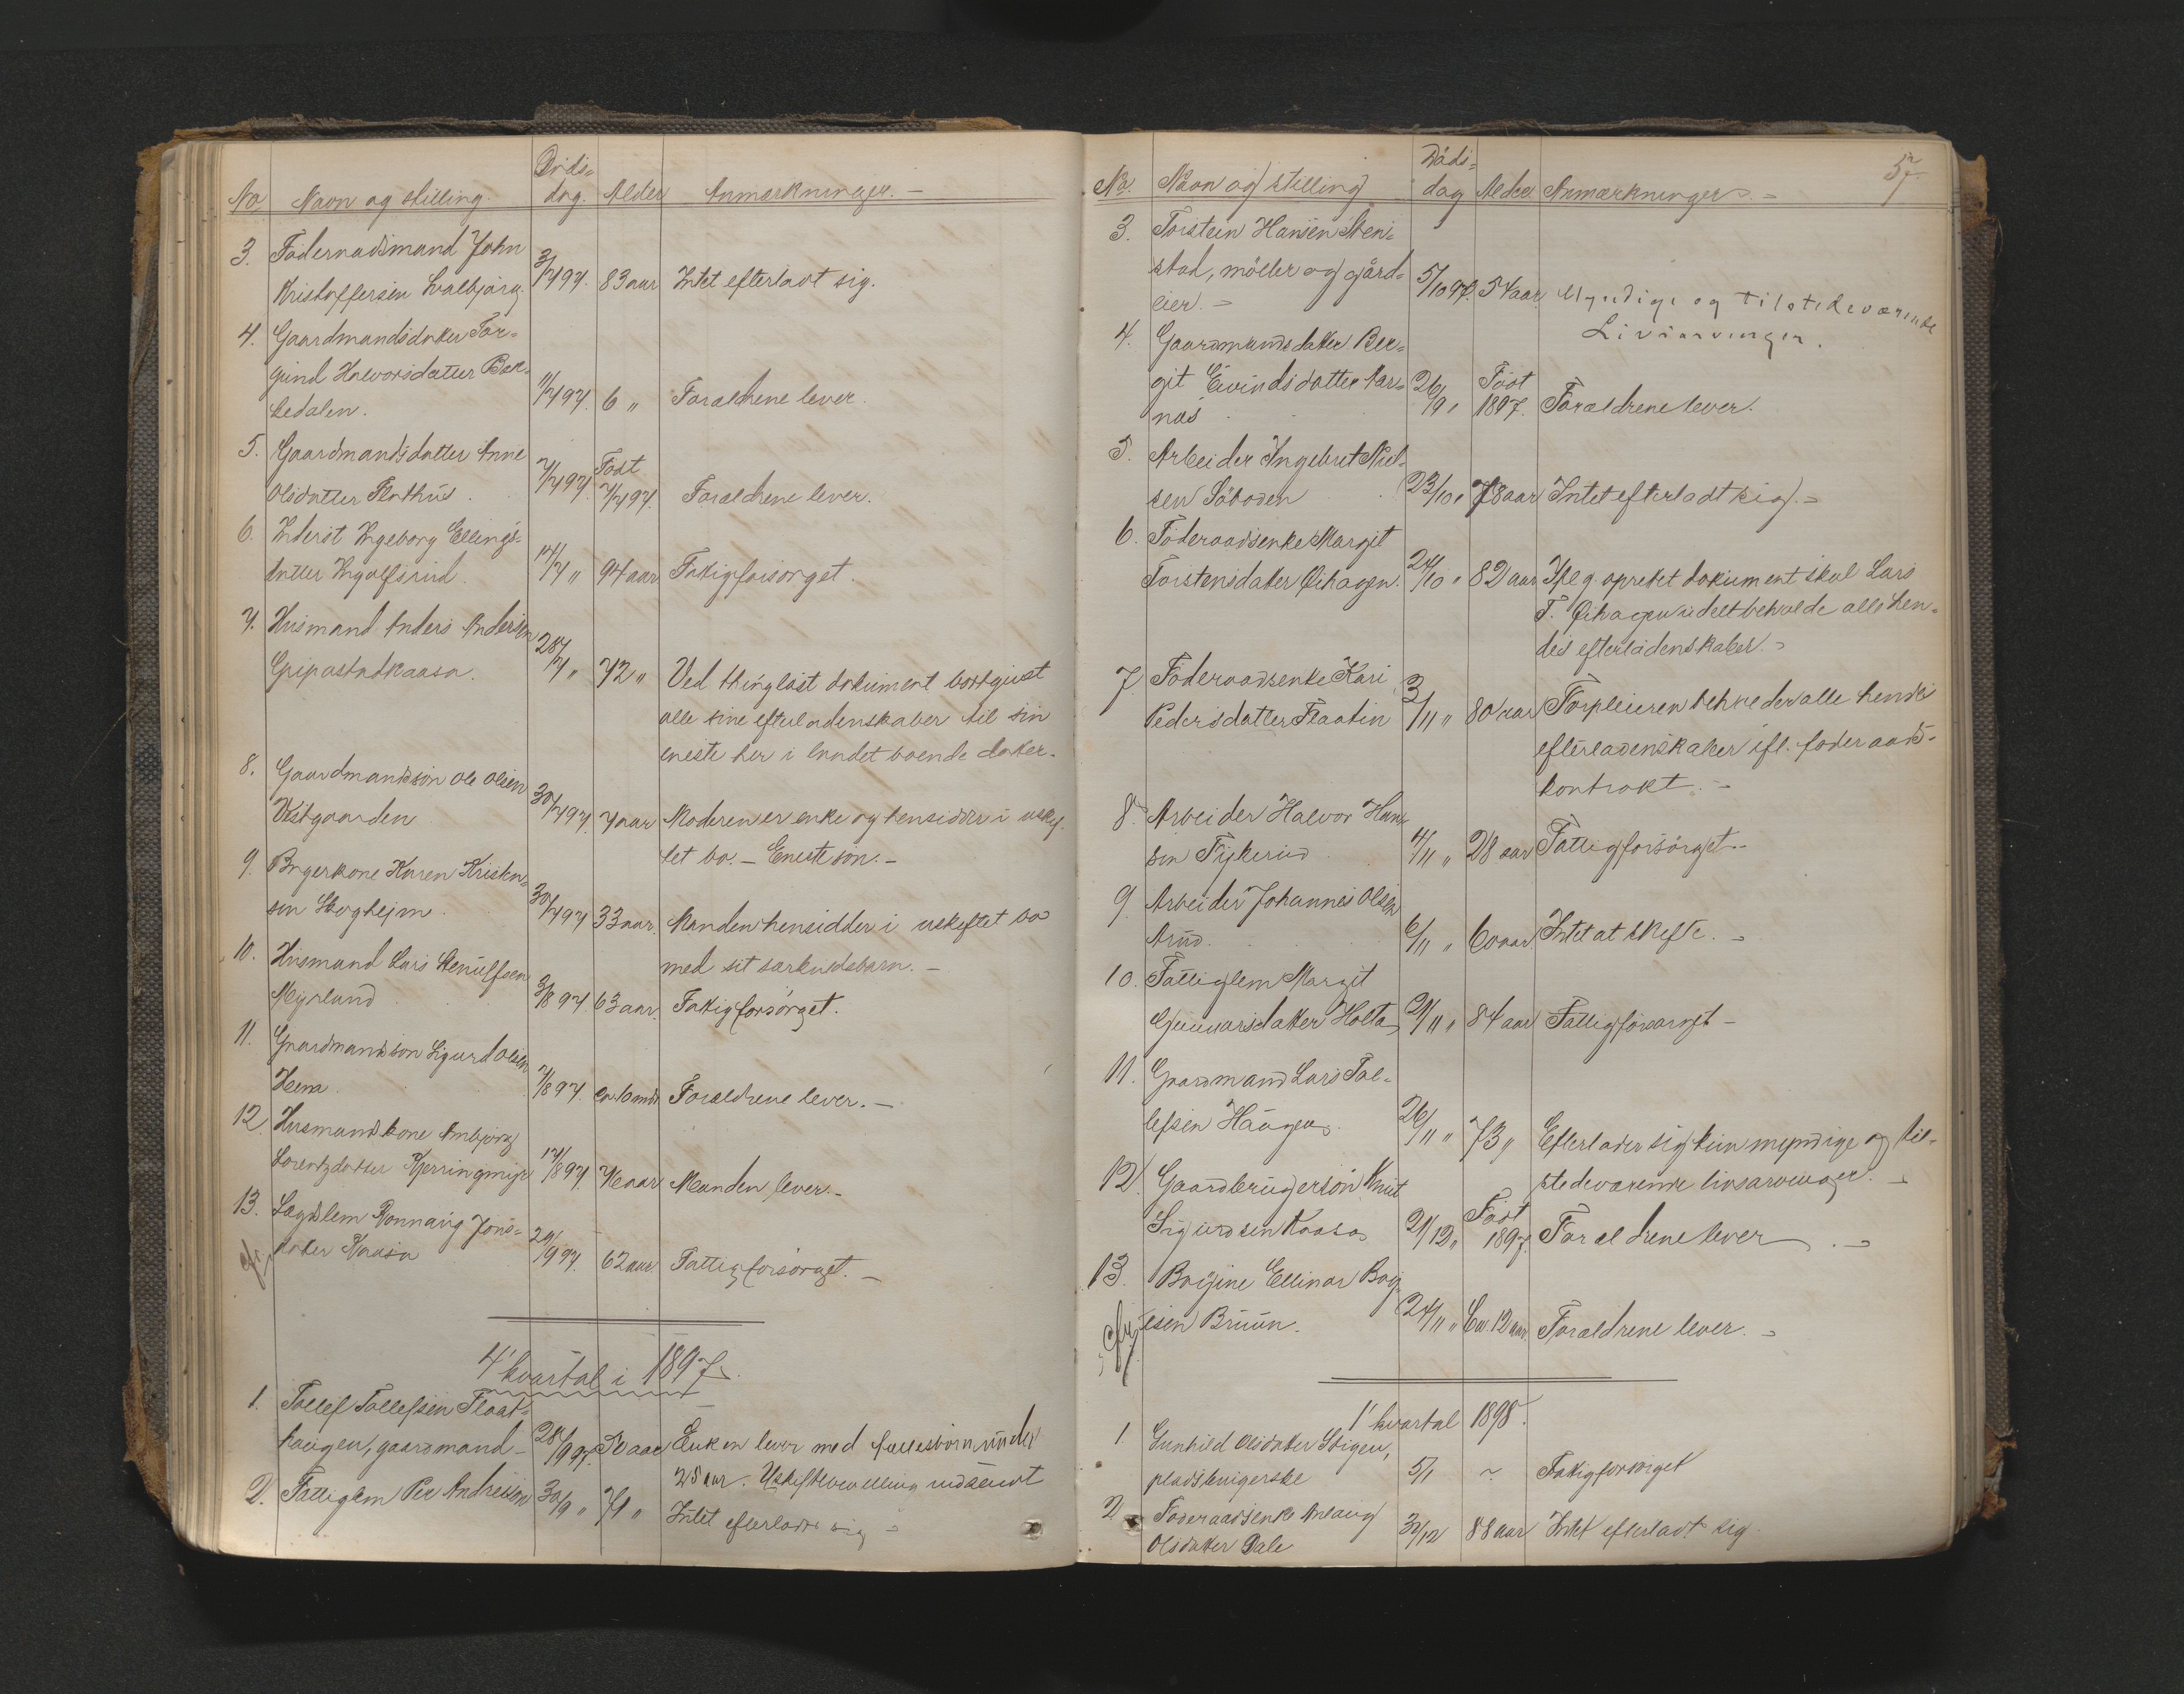 Döds-
No Navn og stilling. dag. Alder Anmærkninger. –
3. Föderaadsmand John
Kristoffersen Kvalbjørg 3/7 97. 83 aar Intet efterladt sig.
4. Gaardmandsdatter Tor-
gund Halvorsdatter Bek-
kedalen. 11/7 97. 6 " Forældrene lever.
5. Gaardmandsdatter Anne
Olsdatter Flathus. 7/7 97. Född 7/7 97. Forældrene lever.
6. Inderst Ingeborg Ellings-
datter Ingolfsrud. 14/7 " 94 aar Fattigforsörget.
7. Husmand Anders Andersen
Gripastadkaasa. 28/7 " 72 " Ved thinglæst dokument bortgivet
alle sine efterladenskaber til sin
eneste her i landet boende datter.
8. Gaardmandssön Ole Olsen
Vestgaarden 30/7 97. 7 aar Moderen er enke og hensidder i uskif-
tet bo. – Eneste sön. –
9. Brugerkone Karen Kristen-
sen Skogheim. 30/7 97 33 aar. Manden hensidder i uskiftet bo
med sit særkuldsbarn. –
10. Husmand Lars Stenulfsen
Myrland 3/8 97. 63 aar. Fattigforsörget.
11. Gaardmandssön Sigurd Olsen
Heem. 7/8 97. ca. 10 mdr Forældrene lever. –
12. Husmandskone Anbjörg
Lorentzdatter Kjerringmyr 14/8 97. aar Manden lever. –
13. Lægdslem Rönnaug Jons-
datter Kaasa 29/9 97. 62 aar. Fattigforsörget. –
4' kvartal i 1897.
1. Tollef Tollefsen Flaat-
haugen, gaardmand – 28/9 97. 50 aar Enken lever med fællesbörn under
25 aar. Uskiftebevilling indsendt
2. Fattiglem Per Andreson 30/9 " 71 " Intet efterladt sig –
57
Döds-
No. Navn og stilling dag Alder Anmærkninger. –
3. Torstein Hansen Sten-
stad, möller og gård-
eier. – 5/10 97. 54 aar Myndige og tilstedeværende
Livsarvinger.
4. Gaardmandsdatter Ber-
git Eivindsdatter Aar-
nes 26/9 " Född 1897. Forældrene lever.
5. Arbeider Ingebret Niel-
sen Söboden 23/10 " 78 aar Intet efterladt sig. –
6. Föderaadsenke Margit
Torstensdatter Öihagen. 24/10 " 82 aar Ifölg. oprettet dokument skal Lars
T. Öihagen udelt beholde alle hen-
des efterladenskaber. –
7 Föderaadsenke Kari
Pedersdatter Flaatin 3/11 " 80 aar Forpleieren beholder alle hendes
efterladenskaber ifl. föderaads-
kontrakt. –
8. Arbeider Halvor Han-
sen Fykerud 4/11 " 28 aar Fattigforsörget. –
9. Arbeider Johannes Olsen
Arud. 6/11 " 60 aar Intet at skifte. –
10. Fattiglem Margit
Gunnarsdatter Holta 9/11 " 84 aar Fattigforsörget –
11. Gaardmand Lars Tol-
lefsen Haugen 26/11 " 73 " Efterlader sig kun myndige og til-
stedeværende livsarvinger. –
12. Gaardbrugersön Knut
Sigurdsen Kaasa 21/12 " Född 1897. Forældrene lever. –
13. Borgine Ellinor Borg-
esen Bruun. 24/11 " Ca. 12 aar. Forældrene lever. –
1' kvartal 1898.
1. Gunhild Olsdatter Stigen,
pladsbrugerske 5/1 ~ Fattigforsörget
2. Föderaadsenke Anlaug
Olsdatter Dale 30/12 88 aar Intet efterladt sig.